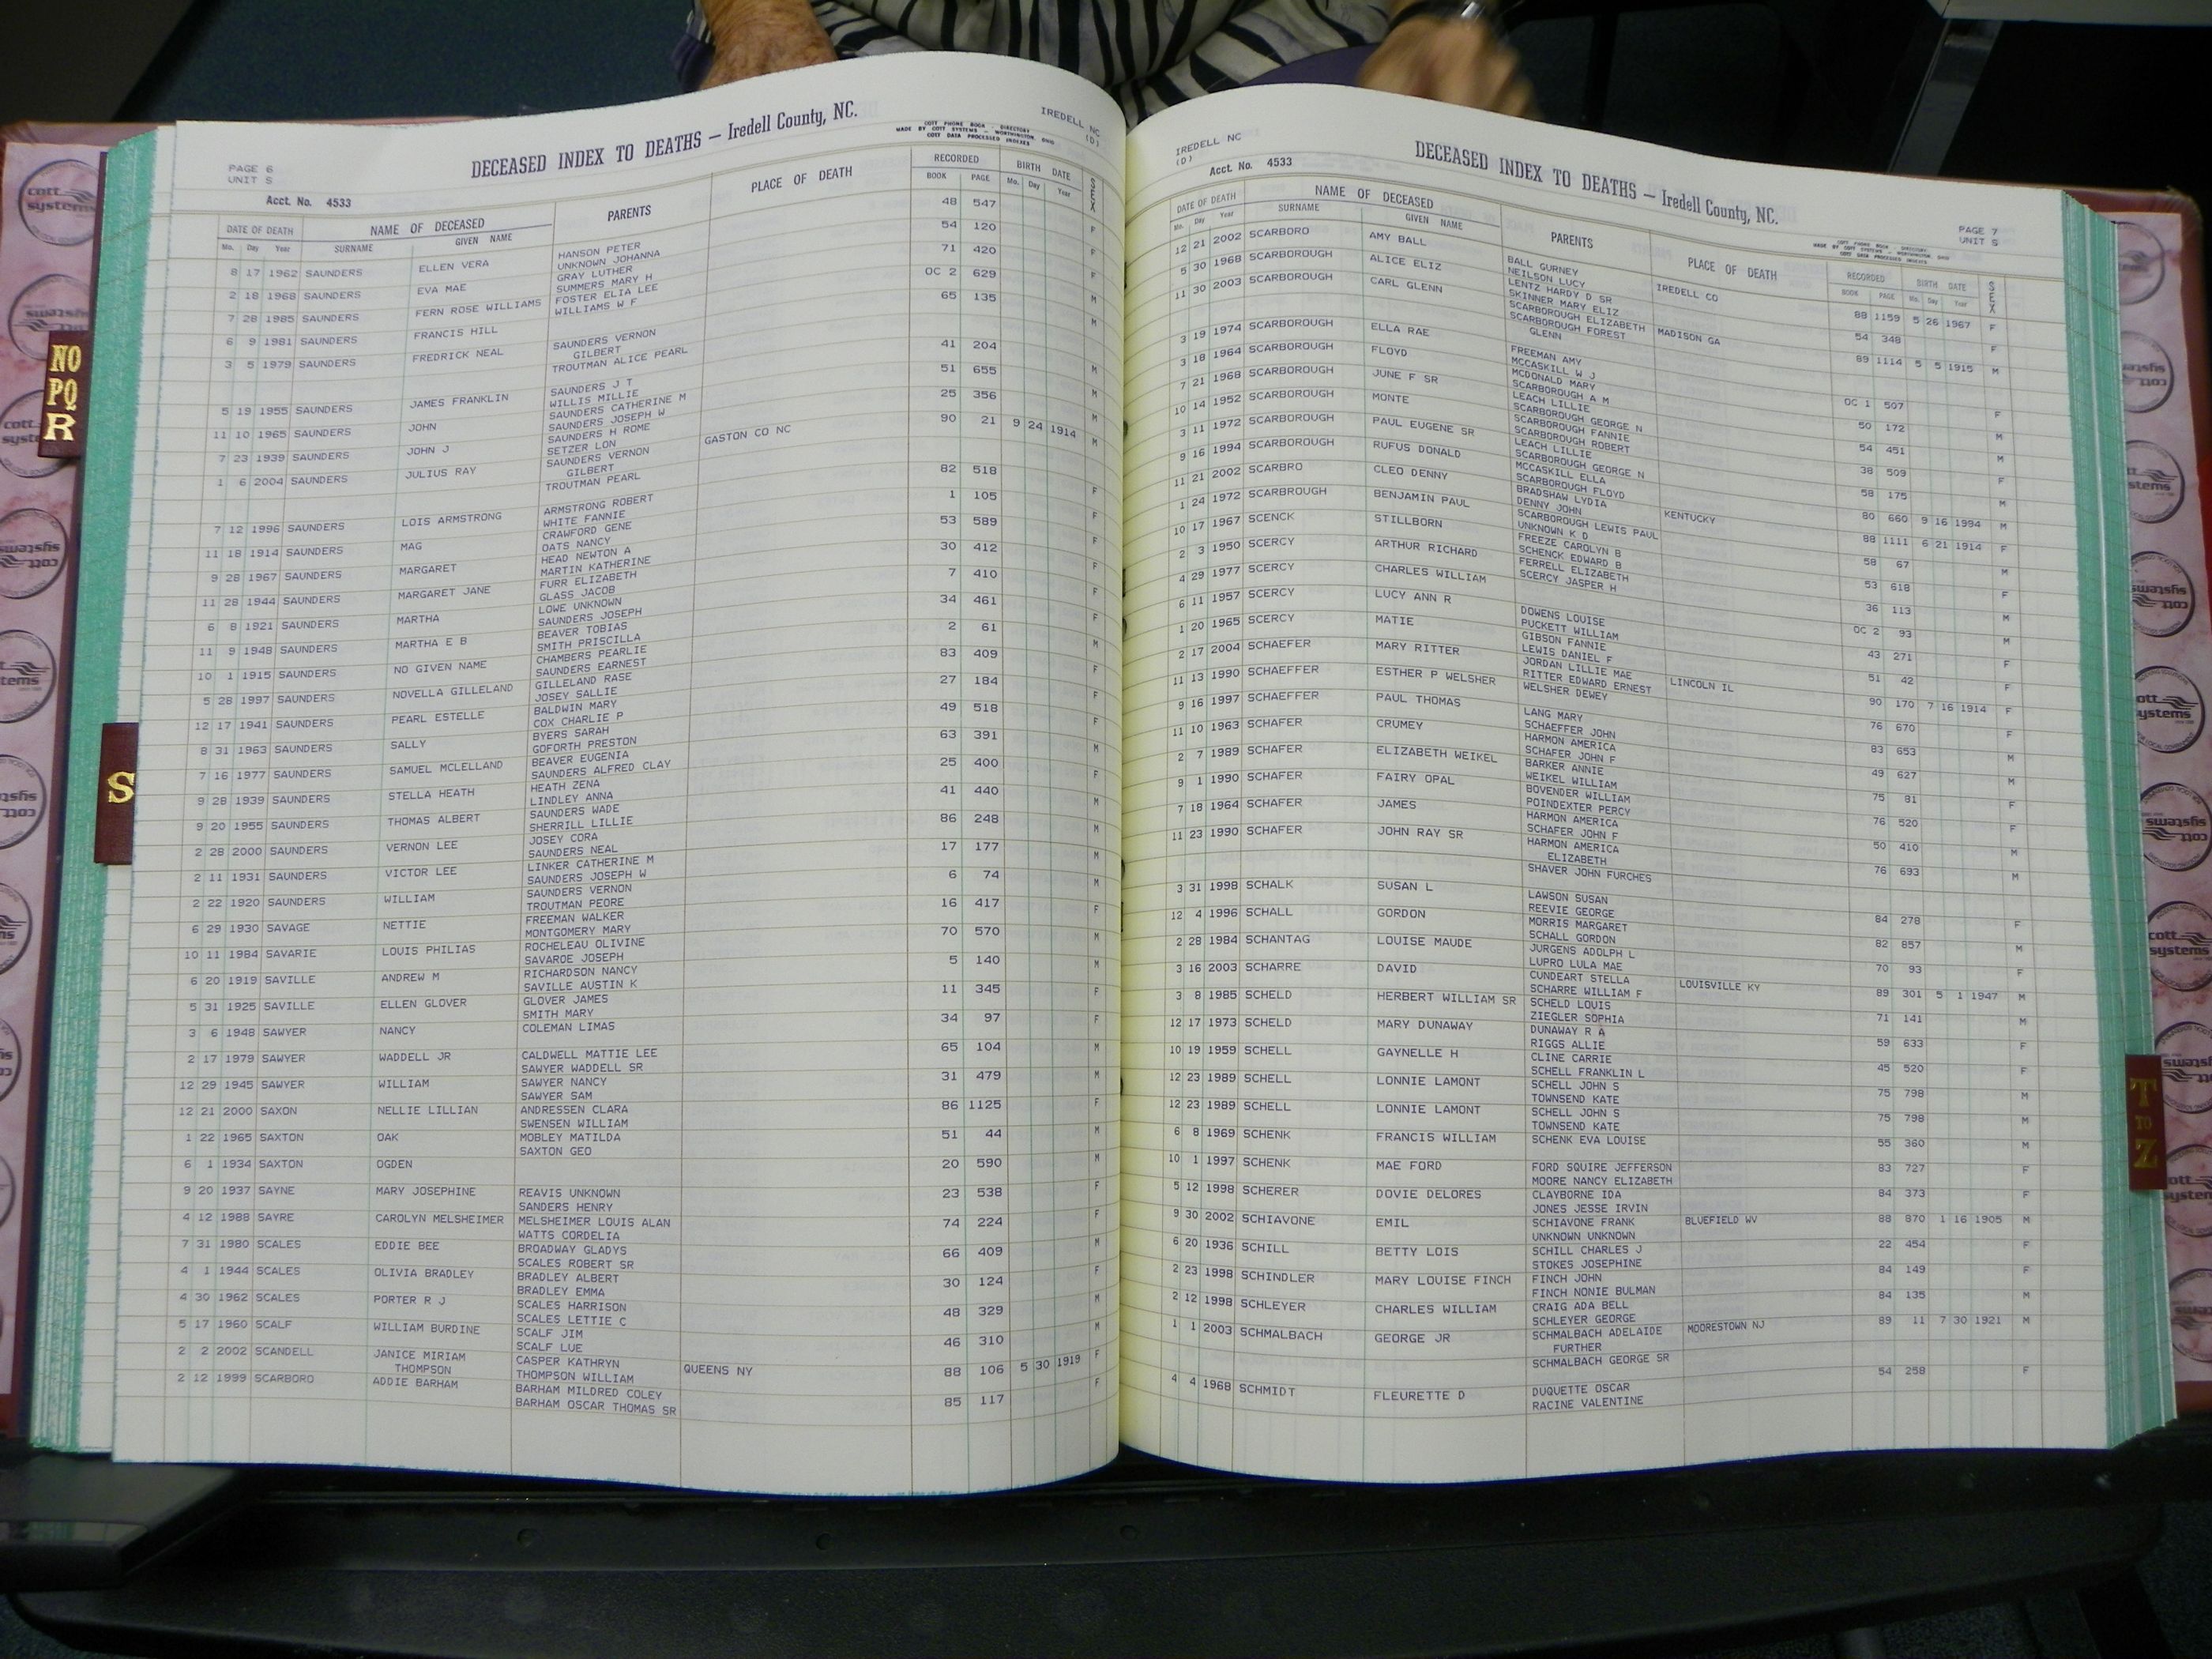 PAGE 6
UNIT S
Acct. No. 4533
DECEASED INDEX TO DEATHS — Iredell County, NC.
COTT PHONE BOOK - DIRECTORY
MADE BY COTT SYSTEMS — WORTHINGTON, OHIO
COTT DATA PROCESSED INDEXES
IREDELL NC
(D)
DATE OF DEATH NAME OF DECEASED PARENTS PLACE OF DEATH RECORDED BIRTH DATE SEX
Mo. Day Year SURNAME GIVEN NAME BOOK PAGE Mo. Day Year
8 17 1962 SAUNDERS ELLEN VERA HANSON PETER 48 547 F
UNKNOWN JOHANNA
2 18 1968 SAUNDERS EVA MAE GRAY LUTHER 54 120 F
SUMMERS MARY H
7 28 1985 SAUNDERS FERN ROSE WILLIAMS FOSTER ELIA LEE 71 420 F
WILLIAMS W F
6 9 1981 SAUNDERS FRANCIS HILL OC 2 629 M
3 5 1979 SAUNDERS FREDRICK NEAL SAUNDERS VERNON 65 135 M
GILBERT
TROUTMAN ALICE PEARL
5 19 1955 SAUNDERS JAMES FRANKLIN SAUNDERS J T 41 204 M
WILLIS MILLIE
11 10 1965 SAUNDERS JOHN SAUNDERS CATHERINE M 51 655 M
SAUNDERS JOSEPH W
7 23 1939 SAUNDERS JOHN J SAUNDERS H ROME 25 356 M
SETZER LON
1 6 2004 SAUNDERS JULIUS RAY SAUNDERS VERNON GASTON CO NC 90 21 9 24 1914 M
GILBERT
TROUTMAN PEARL
7 12 1996 SAUNDERS LOIS ARMSTRONG ARMSTRONG ROBERT 82 518 F
WHITE FANNIE
11 18 1914 SAUNDERS MAG CRAWFORD GENE 1 105 F
OATS NANCY
9 28 1967 SAUNDERS MARGARET HEAD NEWTON A 53 589 F
MARTIN KATHERINE
11 28 1944 SAUNDERS MARGARET JANE FURR ELIZABETH 30 412 F
GLASS JACOB
6 8 1921 SAUNDERS MARTHA LOWE UNKNOWN 7 410 F
SAUNDERS JOSEPH
11 9 1948 SAUNDERS MARTHA E B BEAVER TOBIAS 34 461 F
SMITH PRISCILLA
10 1 1915 SAUNDERS NO GIVEN NAME CHAMBERS PEARLIE 2 61 M
SAUNDERS EARNEST
5 28 1997 SAUNDERS NOVELLA GILLELAND GILLELAND RASE 83 409 F
JOSEY SALLIE
12 17 1941 SAUNDERS PEARL ESTELLE BALDWIN MARY 27 184 F
COX CHARLIE P
8 31 1963 SAUNDERS SALLY BYERS SARAH 49 518 F
GOFORTH PRESTON
7 16 1977 SAUNDERS SAMUEL MCLELLAND BEAVER EUGENIA 63 391 M
SAUNDERS ALFRED CLAY
9 28 1939 SAUNDERS STELLA HEATH HEATH ZENA 25 400 F
LINDLEY ANNA
9 20 1955 SAUNDERS THOMAS ALBERT SAUNDERS WADE 41 440 M
SHERRILL LILLIE
2 28 2000 SAUNDERS VERNON LEE JOSEY CORA 86 248 M
SAUNDERS NEAL
2 11 1931 SAUNDERS VICTOR LEE LINKER CATHERINE M 17 177 M
SAUNDERS JOSEPH W
2 22 1920 SAUNDERS WILLIAM SAUNDERS VERNON 6 74 M
TROUTMAN PEORE
6 29 1930 SAVAGE NETTIE FREEMAN WALKER 16 417 F
MONTGOMERY MARY
10 11 1984 SAVARIE LOUIS PHILIAS ROCHELEAU OLIVINE 70 570 M
SAVAROE JOSEPH
6 20 1919 SAVILLE ANDREW M RICHARDSON NANCY 5 140 M
SAVILLE AUSTIN K
5 31 1925 SAVILLE ELLEN GLOVER GLOVER JAMES 11 345 F
SMITH MARY
3 6 1948 SAWYER NANCY COLEMAN LIMAS 34 97 F
2 17 1979 SAWYER WADDELL JR CALDWELL MATTIE LEE 65 104 M
SAWYER WADDELL SR
12 29 1945 SAWYER WILLIAM SAWYER NANCY 31 479 M
SAWYER SAM
12 21 2000 SAXON NELLIE LILLIAN ANDRESSEN CLARA 86 1125 F
SWENSEN WILLIAM
1 22 1965 SAXTON OAK MOBLEY MATILDA 51 44 M
SAXTON GEO
6 1 1934 SAXTON OGDEN 20 590 M
9 20 1937 SAYNE MARY JOSEPHINE REAVIS UNKNOWN 23 538 F
SANDERS HENRY
4 12 1988 SAYRE CAROLYN MELSHEIMER MELSHEIMER LOUIS ALAN 74 224 F
WATTS CORDELIA
7 31 1980 SCALES EDDIE BEE BROADWAY GLADYS 66 409 M
SCALES ROBERT SR
4 1 1944 SCALES OLIVIA BRADLEY BRADLEY ALBERT 30 124 F
BRADLEY EMMA
4 30 1962 SCALES PORTER R J SCALES HARRISON 48 329 M
SCALES LETTIE C
5 17 1960 SCALF WILLIAM BURDINE SCALF JIM 46 310 M
SCALF LUE
2 2 2002 SCANDELL JANICE MIRIAM CASPER KATHRYN QUEENS NY 88 106 5 30 1919 F
THOMPSON THOMPSON WILLIAM
2 12 1999 SCARBORO ADDIE BARHAM BARHAM MILDRED COLEY 85 117 F
BARHAM OSCAR THOMAS SR
IREDELL NC
(D)
Acct. No. 4533
DECEASED INDEX TO DEATHS — Iredell County, NC.
PAGE 7
UNIT S
DATE OF DEATH NAME OF DECEASED PARENTS PLACE OF DEATH RECORDED BIRTH DATE SEX
Mo. Day Year SURNAME GIVEN NAME BOOK PAGE Mo. Day Year
12 21 2002 SCARBORO AMY BALL BALL GURNEY IREDELL CO 88 1159 5 26 1967 F
NEILSON LUCY
5 30 1968 SCARBOROUGH ALICE ELIZ LENTZ HARDY D SR 54 348 F
SKINNER MARY ELIZ
11 30 2003 SCARBOROUGH CARL GLENN SCARBOROUGH ELIZABETH MADISON GA 89 1114 5 5 1915 M
SCARBOROUGH FOREST
GLENN
3 19 1974 SCARBOROUGH ELLA RAE FREEMAN AMY OC 1 507 F
MCCASKILL W J
3 18 1964 SCARBOROUGH FLOYD MCDONALD MARY 50 172 M
SCARBOROUGH A M
7 21 1968 SCARBOROUGH JUNE F SR LEACH LILLIE 54 451 M
SCARBOROUGH GEORGE N
10 14 1952 SCARBOROUGH MONTE SCARBOROUGH FANNIE 38 509 F
SCARBOROUGH ROBERT
3 11 1972 SCARBOROUGH PAUL EUGENE SR LEACH LILLIE 58 175 M
SCARBOROUGH GEORGE N
9 16 1994 SCARBOROUGH RUFUS DONALD MCCASKILL ELLA 80 660 9 16 1994 M
SCARBOROUGH FLOYD
11 21 2002 SCARBRO CLEO DENNY BRADSHAW LYDIA KENTUCKY 88 1111 6 21 1914 F
DENNY JOHN
1 24 1972 SCARBROUGH BENJAMIN PAUL SCARBOROUGH LEWIS PAUL 58 67 M
UNKNOWN K D
10 17 1967 SCENCK STILLBORN FREEZE CAROLYN B 53 618 F
SCHENCK EDWARD B
2 3 1950 SCERCY ARTHUR RICHARD FERRELL ELIZABETH 36 113 M
SCERCY JASPER H
4 29 1977 SCERCY CHARLES WILLIAM OC 2 93 M
6 11 1957 SCERCY LUCY ANN R DOWENS LOUISE 43 271 F
PUCKETT WILLIAM
1 20 1965 SCERCY MATIE GIBSON FANNIE 51 42 F
LEWIS DANIEL F
2 17 2004 SCHAEFER MARY RITTER JORDAN LILLIE MAE LINCOLN IL 90 170 7 16 1914 F
RITTER EDWARD ERNEST
11 13 1990 SCHAEFFER ESTHER P WELSHER WELSHER DEWEY 76 670 F
9 16 1997 SCHAEFFER PAUL THOMAS LANG MARY 83 653 M
SCHAEFFER JOHN
11 10 1963 SCHAFER CRUMEY HARMON AMERICA 49 627 M
SCHAFER JOHN F
2 7 1989 SCHAFER ELIZABETH WEIKEL BARKER ANNIE 75 81 F
WEIKEL WILLIAM
9 1 1990 SCHAFER FAIRY OPAL BOVENDER WILLIAM 76 520 F
POINDEXTER PERCY
7 18 1964 SCHAFER JAMES HARMON AMERICA 50 410 M
SCHAFER JOHN F
11 23 1990 SCHAFER JOHN RAY SR HARMON AMERICA 76 693 M
ELIZABETH
SHAVER JOHN FURCHES
3 31 1998 SCHALK SUSAN L LAWSON SUSAN 84 278 F
REEVIE GEORGE
12 4 1996 SCHALL GORDON MORRIS MARGARET 82 857 M
SCHALL GORDON
2 28 1984 SCHANTAG LOUISE MAUDE JURGENS ADOLPH L 70 93 F
LUPRO LULA MAE
3 16 2003 SCHARRE DAVID CUNDEART STELLA LOUISVILLE KY 89 301 5 1 1947 M
SCHARRE WILLIAM F
3 8 1985 SCHELD HERBERT WILLIAM SR SCHELD LOUIS 71 141 M
ZIEGLER SOPHIA
12 17 1973 SCHELD MARY DUNAWAY DUNAWAY R A 59 633 F
RIGGS ALLIE
10 19 1959 SCHELL GAYNELLE H CLINE CARRIE 45 520 F
SCHELL FRANKLIN L
12 23 1989 SCHELL LONNIE LAMONT SCHELL JOHN S 75 798 M
TOWNSEND KATE
12 23 1989 SCHELL LONNIE LAMONT SCHELL JOHN S 75 798 M
TOWNSEND KATE
6 8 1969 SCHENK FRANCIS WILLIAM SCHENK EVA LOUISE 55 360 M
10 1 1997 SCHENK MAE FORD FORD SQUIRE JEFFERSON 83 727 F
MOORE NANCY ELIZABETH
5 12 1998 SCHERER DOVIE DELORES CLAYBORNE IDA 84 373 F
JONES JESSE IRVIN
9 30 2002 SCHIAVONE EMIL SCHIAVONE FRANK BLUEFIELD WV 88 870 1 16 1905 M
UNKNOWN UNKNOWN
6 20 1936 SCHILL BETTY LOIS SCHILL CHARLES J 22 454 F
STOKES JOSEPHINE
2 23 1998 SCHINDLER MARY LOUISE FINCH FINCH JOHN 84 149 F
FINCH NONIE BULMAN
2 12 1998 SCHLEYER CHARLES WILLIAM CRAIG ADA BELL 84 135 M
SCHLEYER GEORGE
1 1 2003 SCHMALBACH GEORGE JR SCHMALBACH ADELAIDE MOORESTOWN NJ 89 11 7 30 1921 M
FURTHER
SCHMALBACH GEORGE SR
4 4 1968 SCHMIDT FLEURETTE D DUQUETTE OSCAR 54 258 F
RACINE VALENTINE
NO
PQ
R
S
T
TO
Z
cott
systems